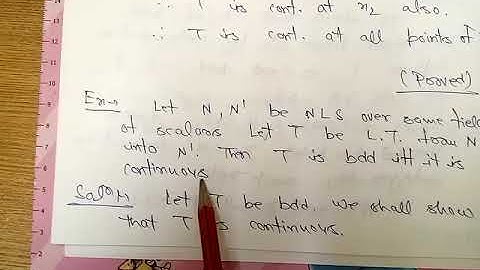 ∴ T is cont. at x₂ also.
∴ T is cont. at all points of
(Proved)
Ex→ Let N, N' be NLS over same field
of scalars Let T be L.T. from N
into N'. Then T is bdd iff it is
continuous
Solⁿ→ Let T be bdd. We shall show
that T is continuous.